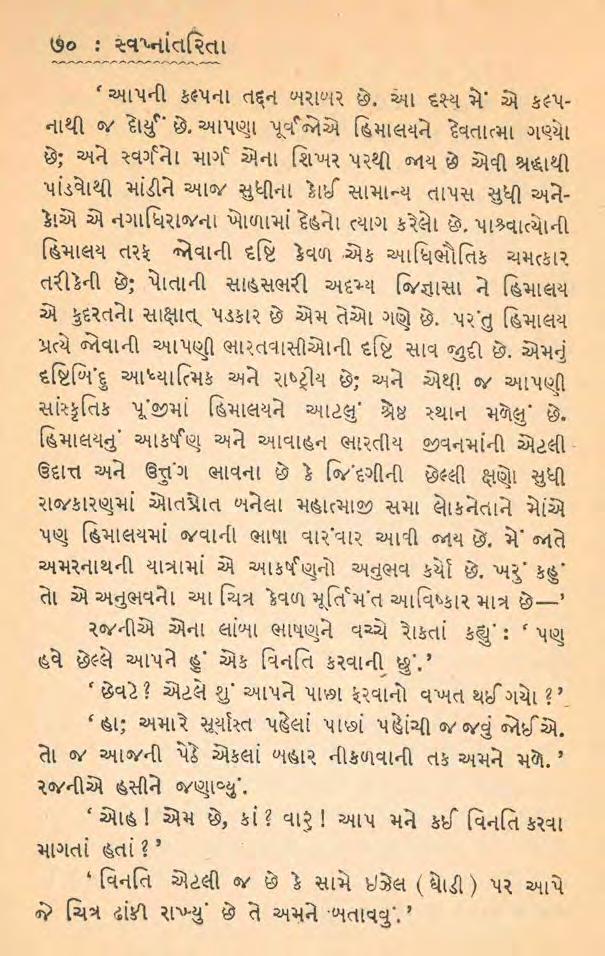 ૭૦ : સ્વપ્નાંતરિતા
‘આપની કલ્પના તદ્દન બરાબર છે. આ દૃશ્ય મેં એ કલ્પ-
નાથી જ દોર્યું છે. આપણા પૂર્વજોએ હિમાલયને દેવતાત્મા ગણ્યો
છે; અને સ્વર્ગનો માર્ગ એના શિખર પરથી જાય છે એવી શ્રદ્ધાથી
પાંડવોથી માંડીને આજ સુધીના કોઈ સામાન્ય તાપસ સુધી અને-
કોએ એ નગાધિરાજના ખોળામાં દેહનો ત્યાગ કરેલો છે. પાશ્ર્વાત્યોની
હિમાલય તરફ જોવાની દૃષ્ટિ કેવળ એક આધિભૌતિક ચમત્કાર
તરીકેની છે; પોતાની સાહસભરી અદમ્ય જિજ્ઞાસા ને હિમાલય
એ કુદરતનો સાક્ષાત્ પડકાર છે એમ તેઓ ગણે છે. પરંતુ હિમાલય
પ્રત્યે જોવાની આપણી ભારતવાસીઓની દૃષ્ટિ સાવ જુદી છે. એમનું
દૃષ્ટિબિંદુ આધ્યાત્મિક અને રાષ્ટ્રીય છે; અને એથી જ આપણી
સાંસ્કૃતિક પૂંજીમાં હિમાલયને આટલું શ્રેષ્ઠ સ્થાન મળેલું છે.
હિમાલયનું આકર્ષણ અને આવાહન ભારતીય જીવનમાંની એટલી
ઉદાત્ત અને ઉત્તુંગ ભાવના છે કે જિંદગીની છેલ્લી ક્ષણો સુધી
રાજકારણમાં ઓતપ્રોત બનેલા મહાત્માજી સમા લોકનેતાને મોંએ
પણ હિમાલયમાં જવાની ભાષા વારંવાર આવી જાય છે. મેં જાતે
અમરનાથની યાત્રામાં એ આકર્ષણનો અનુભવ કર્યો છે. ખરું કહું
તો એ અનુભવનો આ ચિત્ર કેવળ મૂર્તિમંત આવિષ્કાર માત્ર છે—’
રજનીએ એના લાંબા ભાષણને વચ્ચે રોકતાં કહ્યું : ‘પણ
હવે છેલ્લે આપને હું એક વિનતિ કરવાની છું.’
‘છેવટે? એટલે શું આપને પાછા ફરવાનો વખત થઈ ગયો ?’
‘હા; અમારે સૂર્યાસ્ત પહેલાં પાછાં પહોંચી જ જવું જોઈએ.
તો જ આજની પેઠે એકલાં બહાર નીકળવાની તક અમને મળે.’
રજનીએ હસીને જણાવ્યું.
‘ઓહ ! એમ છે, કાં ? વારુ ! આપ મને કઈ વિનતિ કરવા
માગતાં હતાં ?’
‘વિનતિ એટલી જ છે કે સામે ઇઝેલ ( ઘોડી ) પર આપે
જે ચિત્ર ઢાંકી રાખ્યું છે તે અમને બતાવવું.’